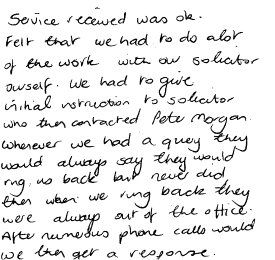 Service received was ok.
Felt that we had to do alot
of the work with our solicitor
ourself. We had to give
initial instruction to solicitor
who then contacted Pete Morgan.
Whenever we had a query they
would always say they would
ring us back but never did
then when we rung back they
were always out of the office.
After numerous phone calls would
we then get a response.